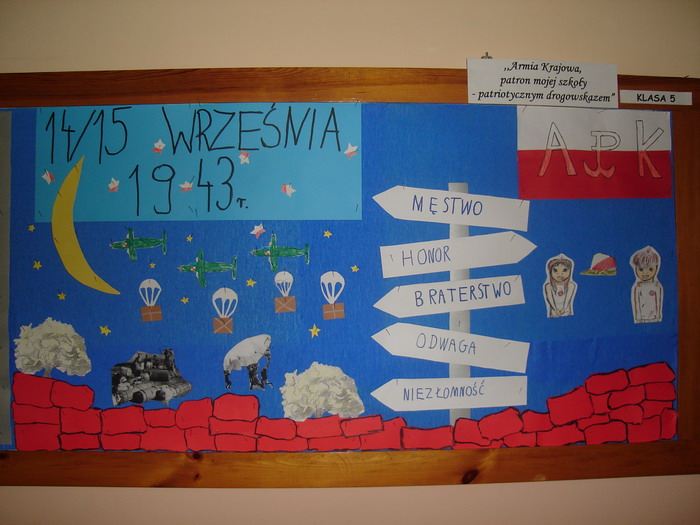 „Armia Krajowa,
patron mojej szkoły
- patriotycznym drogowskazem"
KLASA 5
14/15 WRZEŚNIA
1943r.
A K
MĘSTWO
HONOR
BRATERSTWO
ODWAGA
NIEZŁOMNOŚĆ